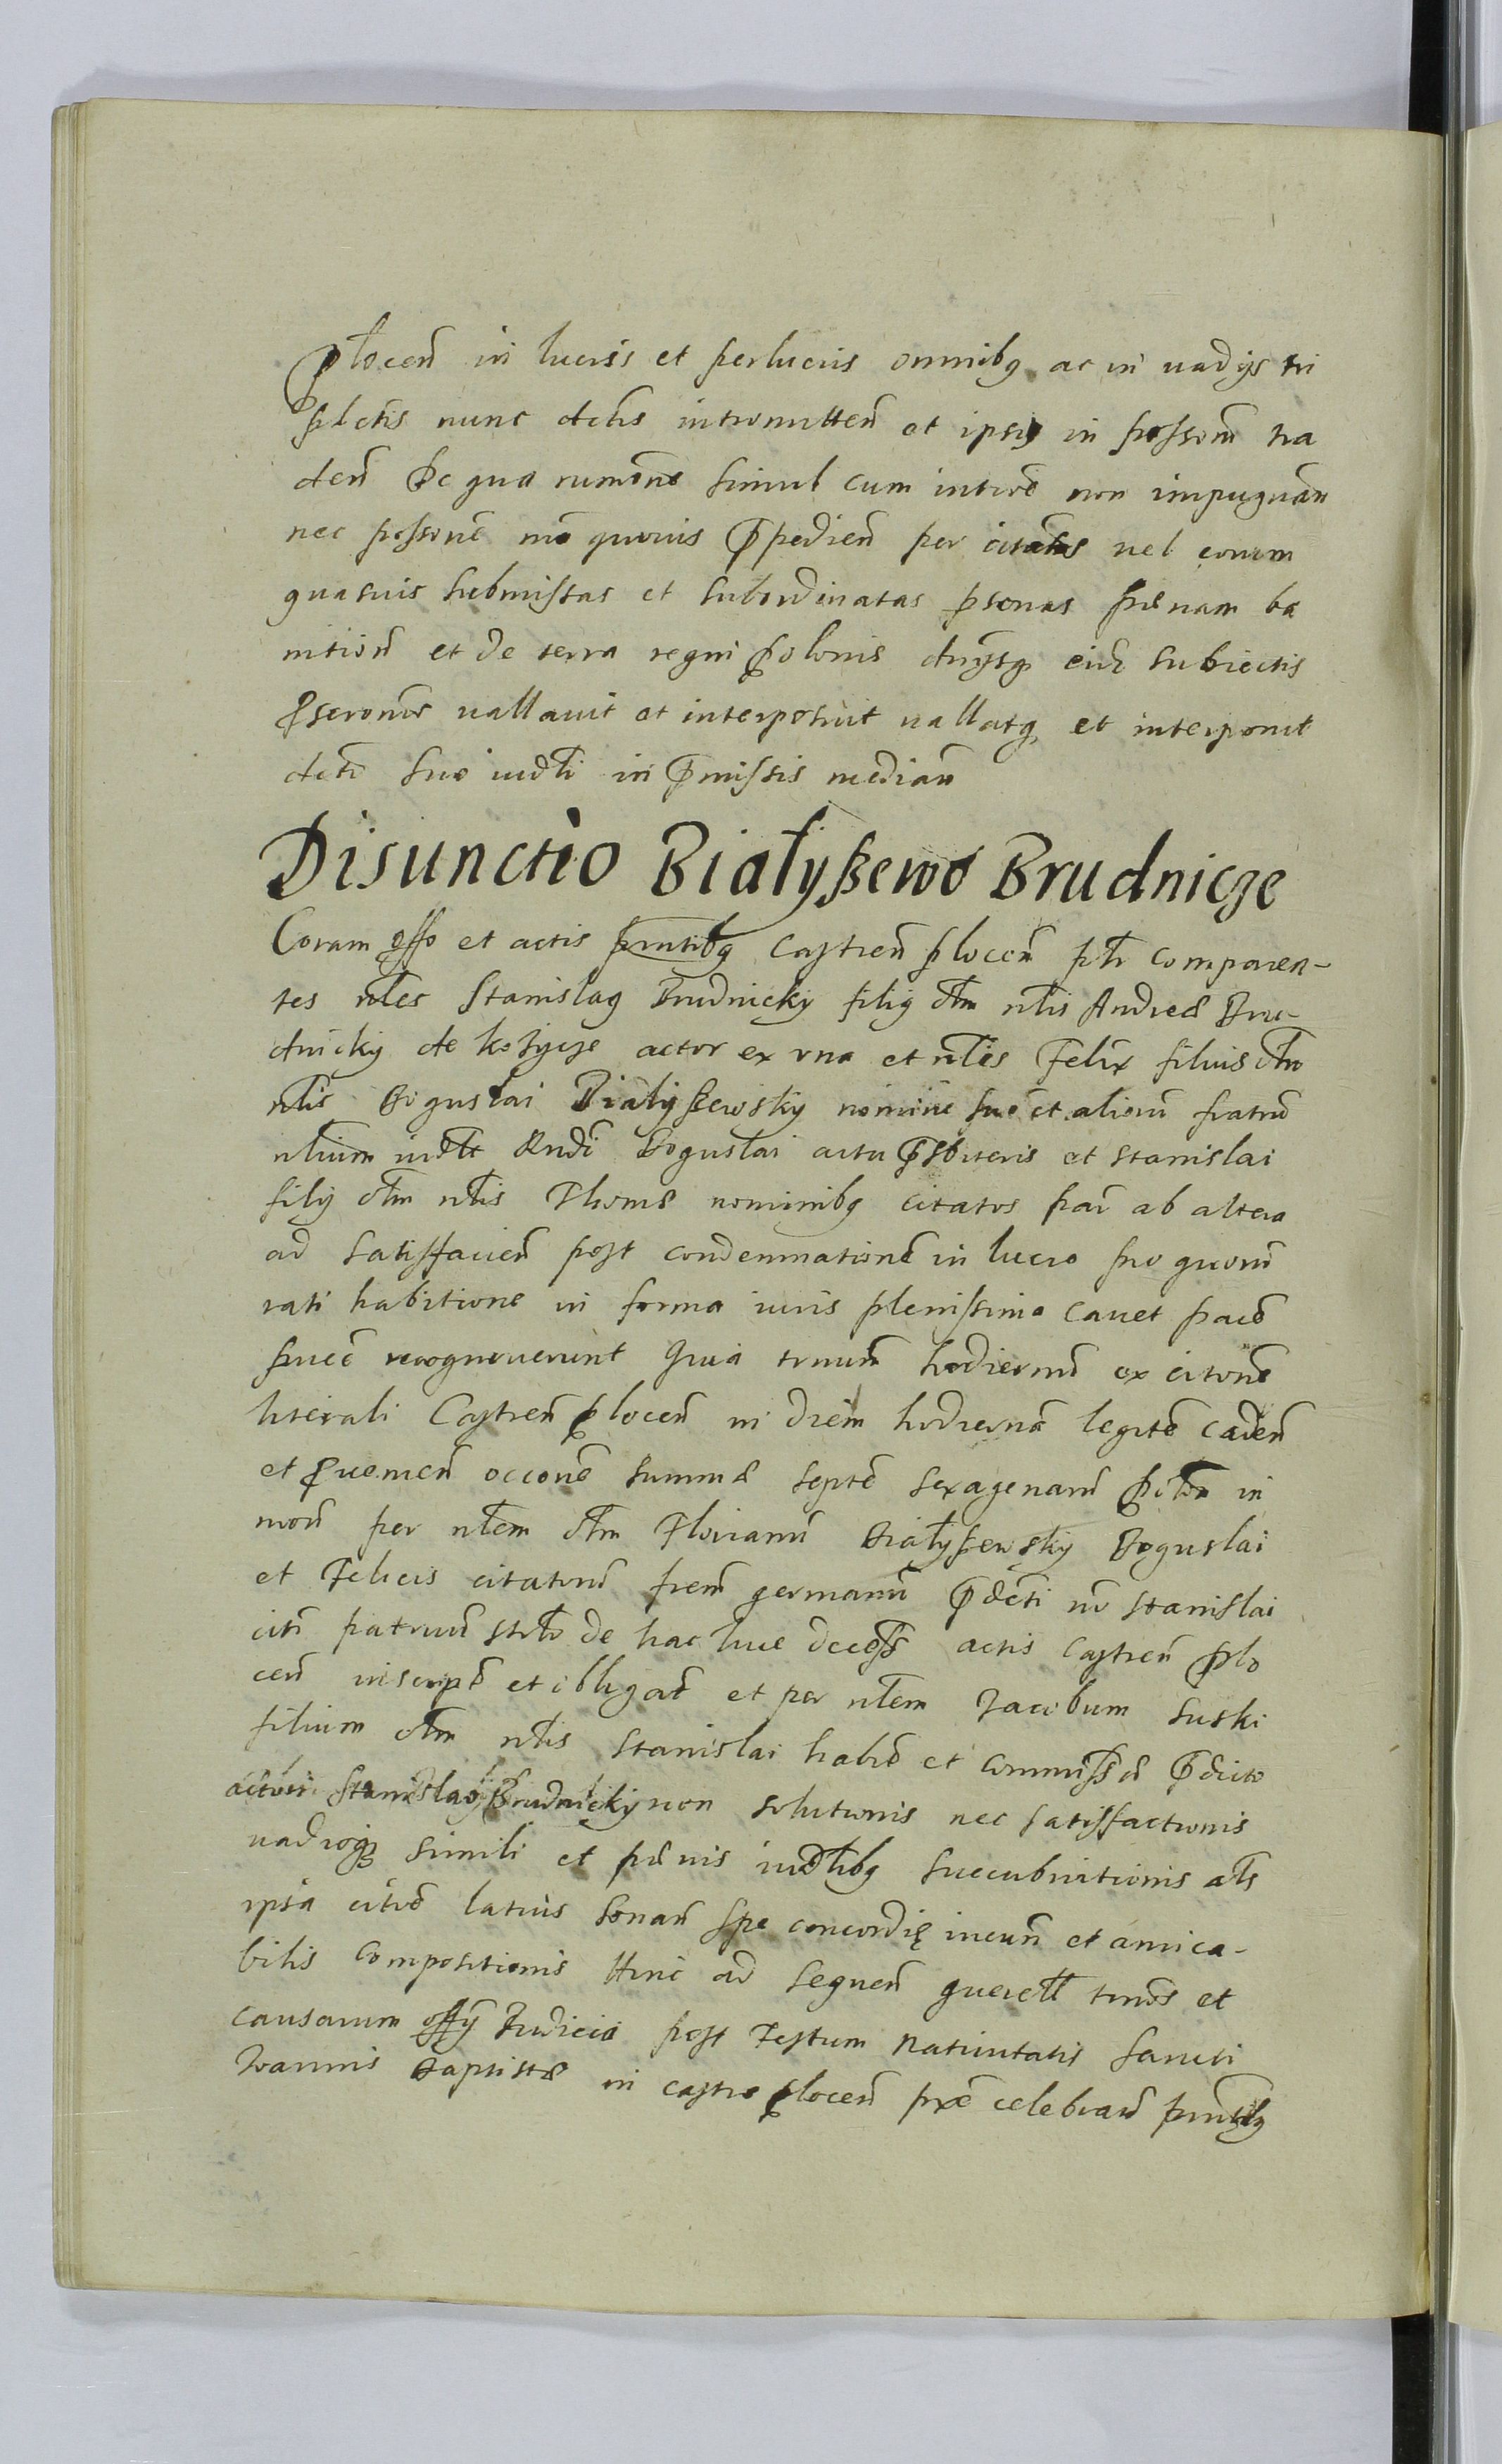 plocen̄ in lucris et perlucris omnibq ac in uadijs tri
plctis nunc dctis intromitten̄ et ipsiq in possom̄ tra
den̄ Se qua rumōne Simul cum intrōe non impugnān
nec possionē mō quouis p̄pedien̄ per citātos uel eorum
quasuis submissas et subordinatas psonas pænam ba
nitioīs et de terra regni poloniæ dnijsq eidē subiectis
pscrōnis uallauit et interposuit uallatq et interponit
dcto suo iudli in p̄missis median̄
Disunctio Białyßewo Brudnicze
Coram offo et actis pn̄tibq Castren̄ plocen̄ plr comparen-
tes nlēs Stanislaq Brudnicky filiq olm nlis Andreæ Bru-
dnicky de kożycze actor ex vna et nlēs Felix filius olm
nlis Boguslai Białyßewsky nomine suo et aliorū fratrū
nlium iudlt Andī Boguslai actu p̄sbiteris et Stanislai
filij olm nlis Thomæ nominibq citatos par ab altera
ad satisfacien̄ post condemnationē in lucro pro quorū
rati habitione in forma iuris plenissima cauet parē
sucē recognouerunt Quia trnum hodiernū ex citonē
literali Castren̄ plocen̄ in diem hodiernā legitē caden̄
et pueniēn occonē summæ septē sexagenarū pctōr in
mon̄ per nlem olm Florianū Białyßewsky Boguslai
et Felicis citatorū frem̄ germanū p̄dcti nr̄ Stanislai
citi patruū strlō de hac luce decess̄ actis Castren̄ plo
cen̄ inscriptē et obligat̄ et per nlem Jacobum Suski
filium olm nlis Stanislai habit̄ et commissæ p̄dicto
actori Stanislao Brudnicky non solutionis nec satisfactionis
uadioqʒ simili et pænis iudlibq succubuitionis als
ipsa citrō latius sonan̄ spe concordię ineun̄ et amica-
bilis compositionis Hinc ad sequen̄ querell trnōs et
causarum offij Judicia post Festum Natiuitatis Sancti
Joannis Baptistæ in castro plocen̄ prx̄ē celebran̄ pn̄tibq